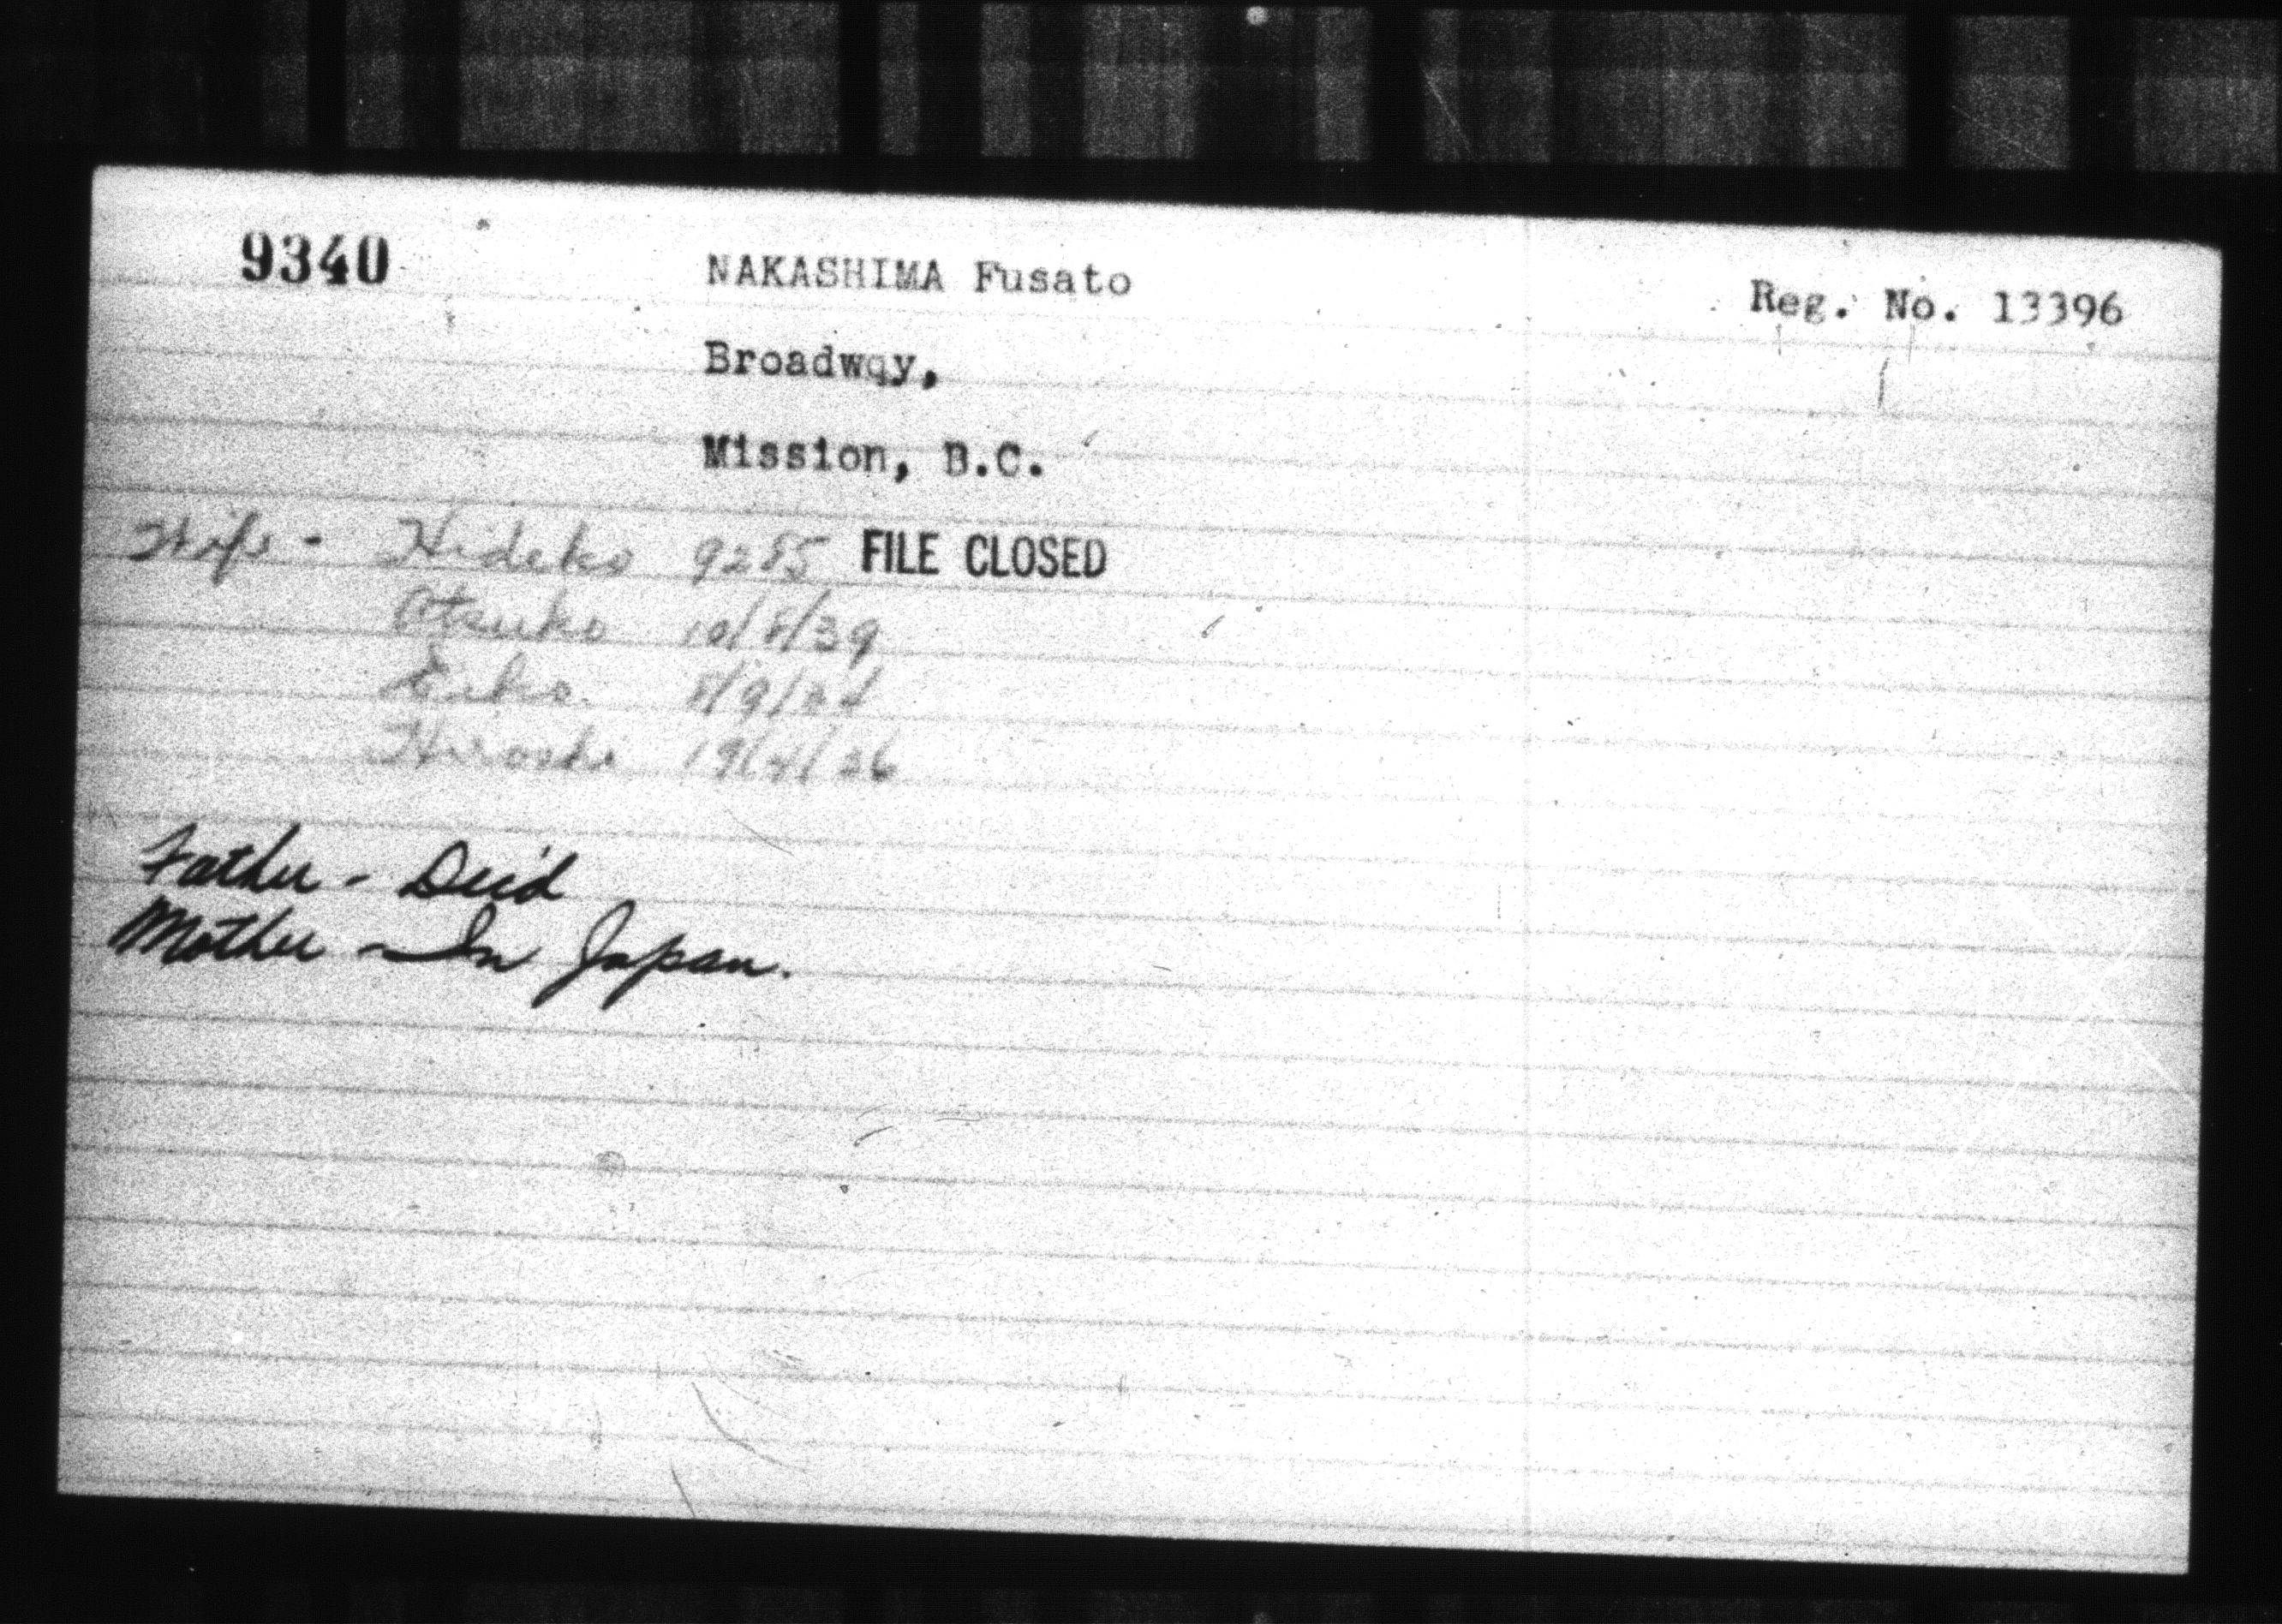 9340 NAKASHIMA Fusato Reg. No. 13396
Broadwqy,
Mission, B.C.
Wife - Hideko 9285 FILE CLOSED
Atsuko 10/8/39
Eiko 8/9/34
Hiroshi 19/4/36
Father - Dec'd
Mother - In Japan.